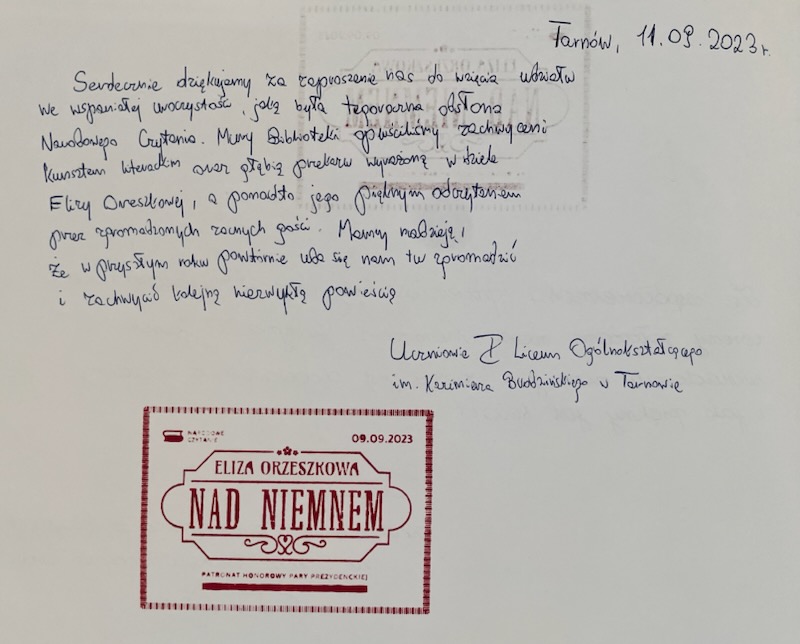 Tarnów, 11.09.2023r.
Serdecznie dziękujemy za zaproszenie nas do wzięcia udziału
we wspaniałej uroczystości, jaką była tegoroczna odsłona
Narodowego Czytania. Mury Biblioteki opuściliśmy zachwyceni
kunsztem literackim oraz głębią przekazu wyrażoną w dziele
Elizy Orzeszkowej, a ponadto jego pięknym odczytaniem
przez zgromadzonych zacnych gości. Mamy nadzieję,
że w przyszłym roku powtórnie uda się nam tu zgromadzić
i zachwycić kolejną niezwykłą powieścią
Uczniowie I Liceum Ogólnokształcącego
im. Kazimierza Brodzińskiego w Tarnowie
NARODOWE
CZYTANIE
09.09.2023
ELIZA ORZESZKOWA
NAD NIEMNEM
PATRONAT HONOROWY PARY PREZYDENCKIEJ